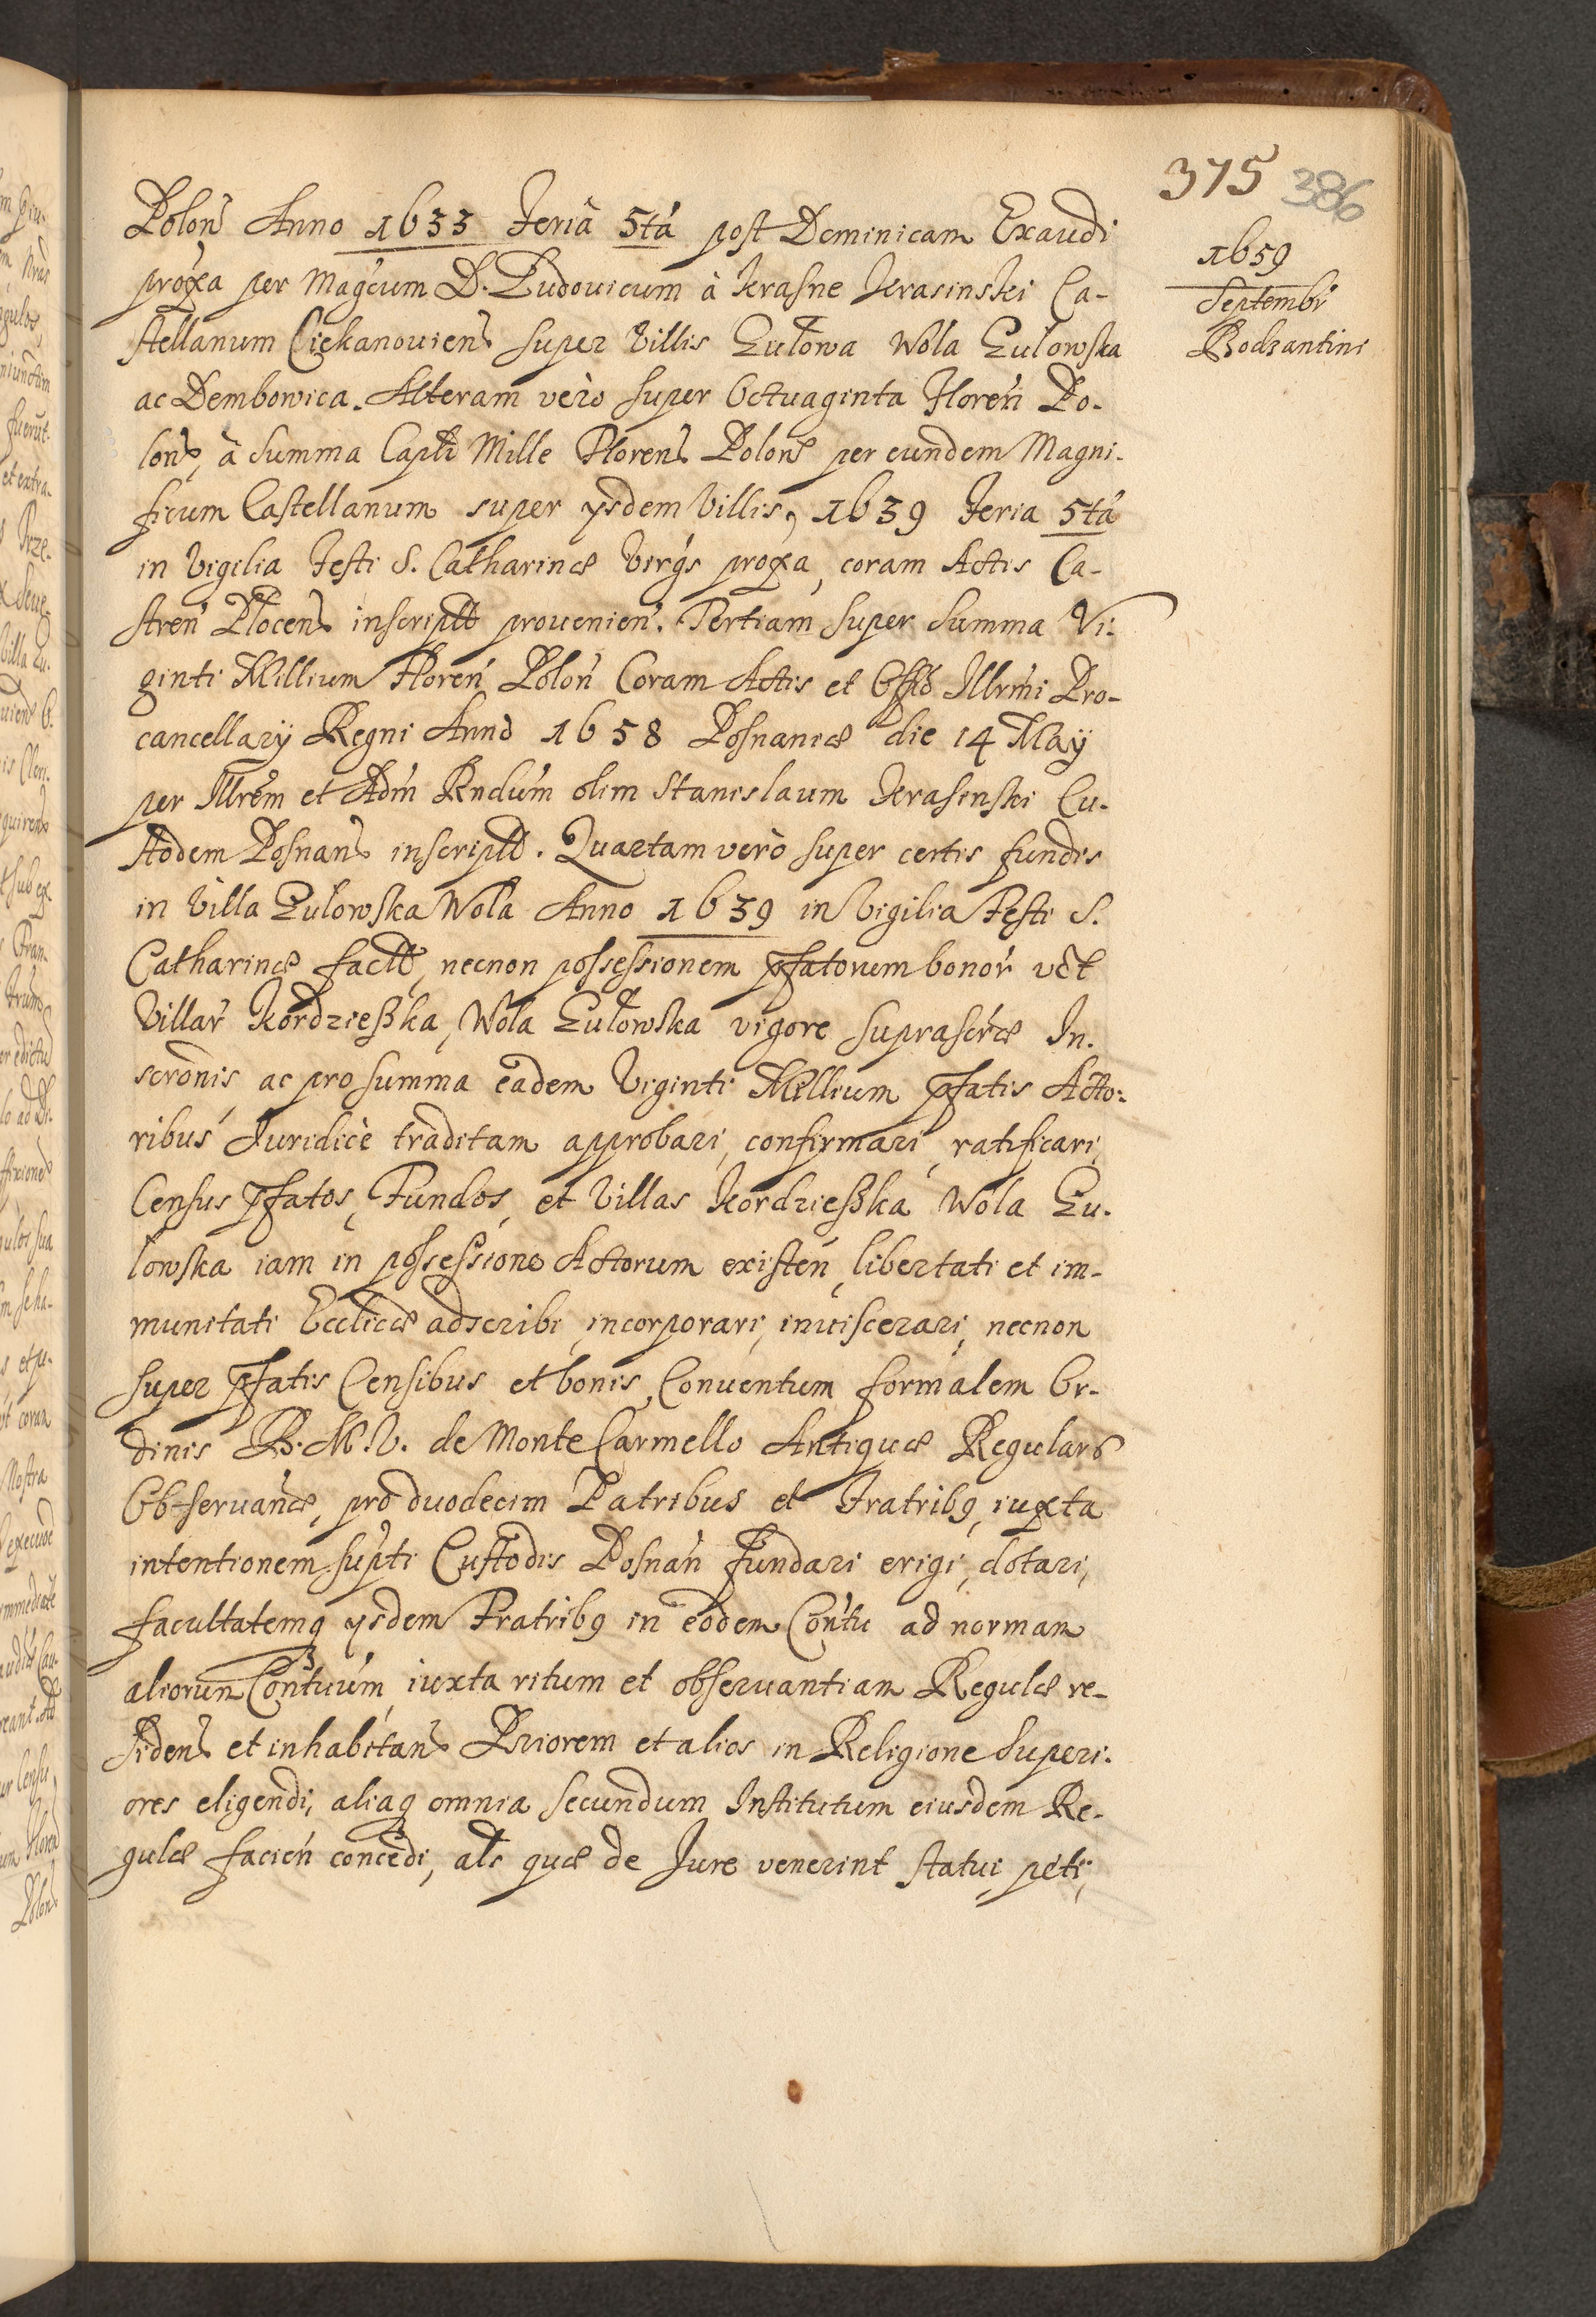 375 386
1659
Septembr
Bodzantini
Polon Anno 1633 Feria 5tá post Dominicam Exaudi
proxa per Magcum D. Ludouicum à Krasne Krasinski Ca-
stellanum Ciekanouiens super Villis Zułowa Wola Zulowska
ac Dembowica. Alteram verò super Octuaginta Floreń Po-
lons, à Summa Capli Mille Florens Polons per eundem Magni-
ficum Castellanum super ysdem Villis, 1639 Feria 5tá
in Vigilia Festi S. Catharinæ Virgs proxa, coram Actis Ca-
streń Plocens inscript prouenień. Tertiam super Summa Vi-
ginti Millium Floreń Poloń Coram Actis et Offo Illrmi Pro-
cancellarÿ Regni Anno 1658 Posnaniæ die 14 Maÿ
per Illrem et Adm Rndum olim Stanislaum Krasinski Cu-
stodem Posnans inscript. Quartam verò super certis fundis
in Villa Zulowska Wola Anno 1639 in Vigilia Festi S.
Catharinæ fact, necnon possessionem pfatorum bonor vct
Villar Kordzießka, Wola Zułowska vigore suprascræ In-
scronis ac pro summa eadem Viginti Millium pfatis Acto-
ribus Juridicè traditam approbari, confirmari, ratificari,
Census pfatos, Fundos, et Villas Kordzießka Wola Zu-
lowska iam in possessione Actorum existeń, libertati et im-
munitati Eccliæ adscribi, incorporari, inuiscerari, necnon
super pfatis Censibus et bonis Conuentum formalem Or-
dinis B. M. V. de Monte Carmello Antiquæ Regulars
Obseruańæ, pro duodecim Patribus et Fratribq iuxta
intentionem supti Custodis Posnań fundari erigi, dotari,
facultatemq ysdem Fratribq in eodem Contu ad norman
aliorum Contuum iuxta ritum et obseruantiam Regulæ re-
sidens et inhabitans Priorem et alios in Religione Superi-
ores eligendi, aliaq omnia secundum Institutum eiusdem Re-
gulæ facień concedi, als quæ de Jure venerint statui peti,